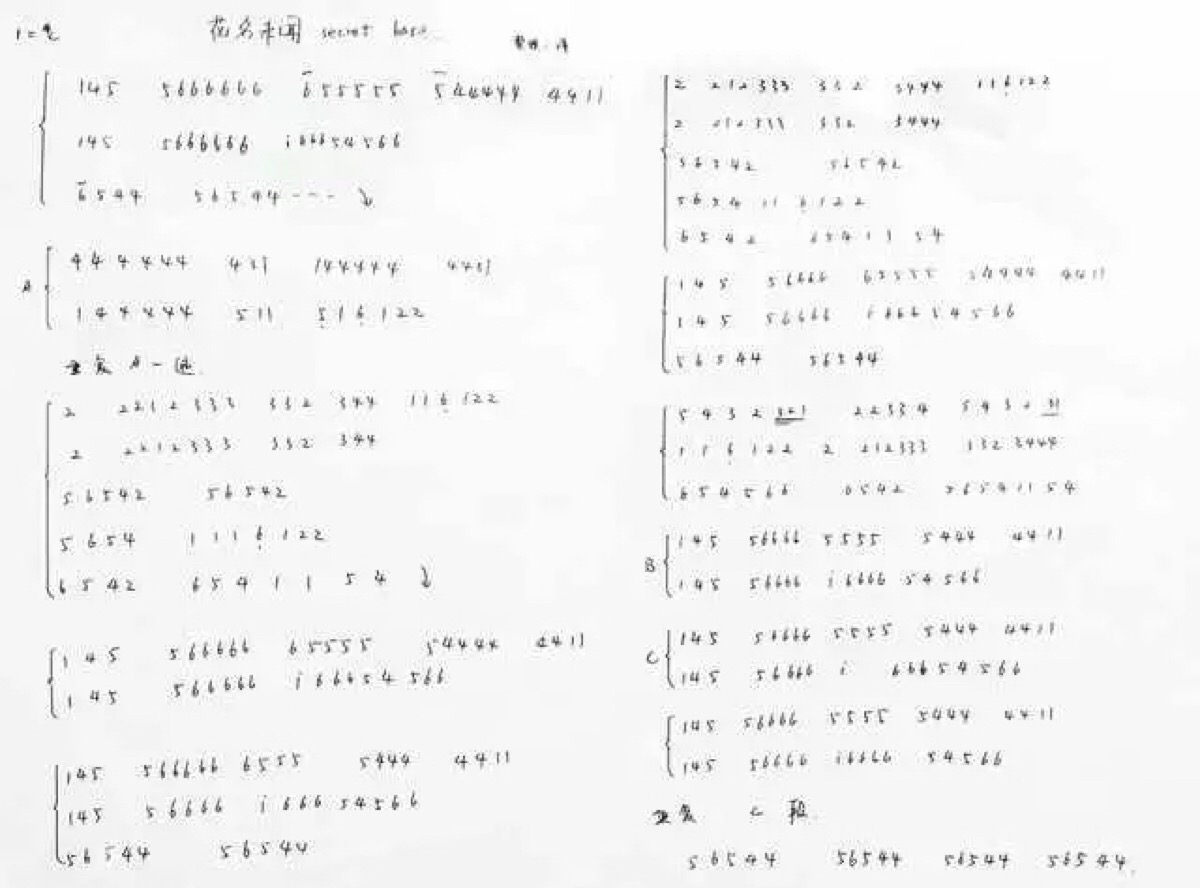 1=C
花名未闻 secret base
145 5666666 655555 544444 4411
145 5666666 i66654566
6544 56544--- ↓
A
444444 431 144444 4431
144444 511 516122
重复 A 一遍
2 2212333 332 344 116122
2 2212333 332 344
56542 56542
5654 1116122
6542 65411 54 ↓
145 566666 65555 54444 4411
145 566666 i66654566
145 566666 6555 5444 4411
145 56666 i66654566
56544 56544
2 212333 332 3444 116122
2 212333 332 3444
56542 56542
5654 116122
6542 65411 54
145 56666 65555 54444 4411
145 56666 i66654566
56544 56544
5432 321 22334 5432 31
116122 2 212333 132 3444
654566 6542 56541154
B
145 56666 5555 5444 4411
145 56666 i6666 54566
C
145 56666 5555 5444 4411
145 56666 i 66654566
145 56666 5555 5444 4411
145 56666 i6666 54566
重复 C 段
56544 56544 56544 56544